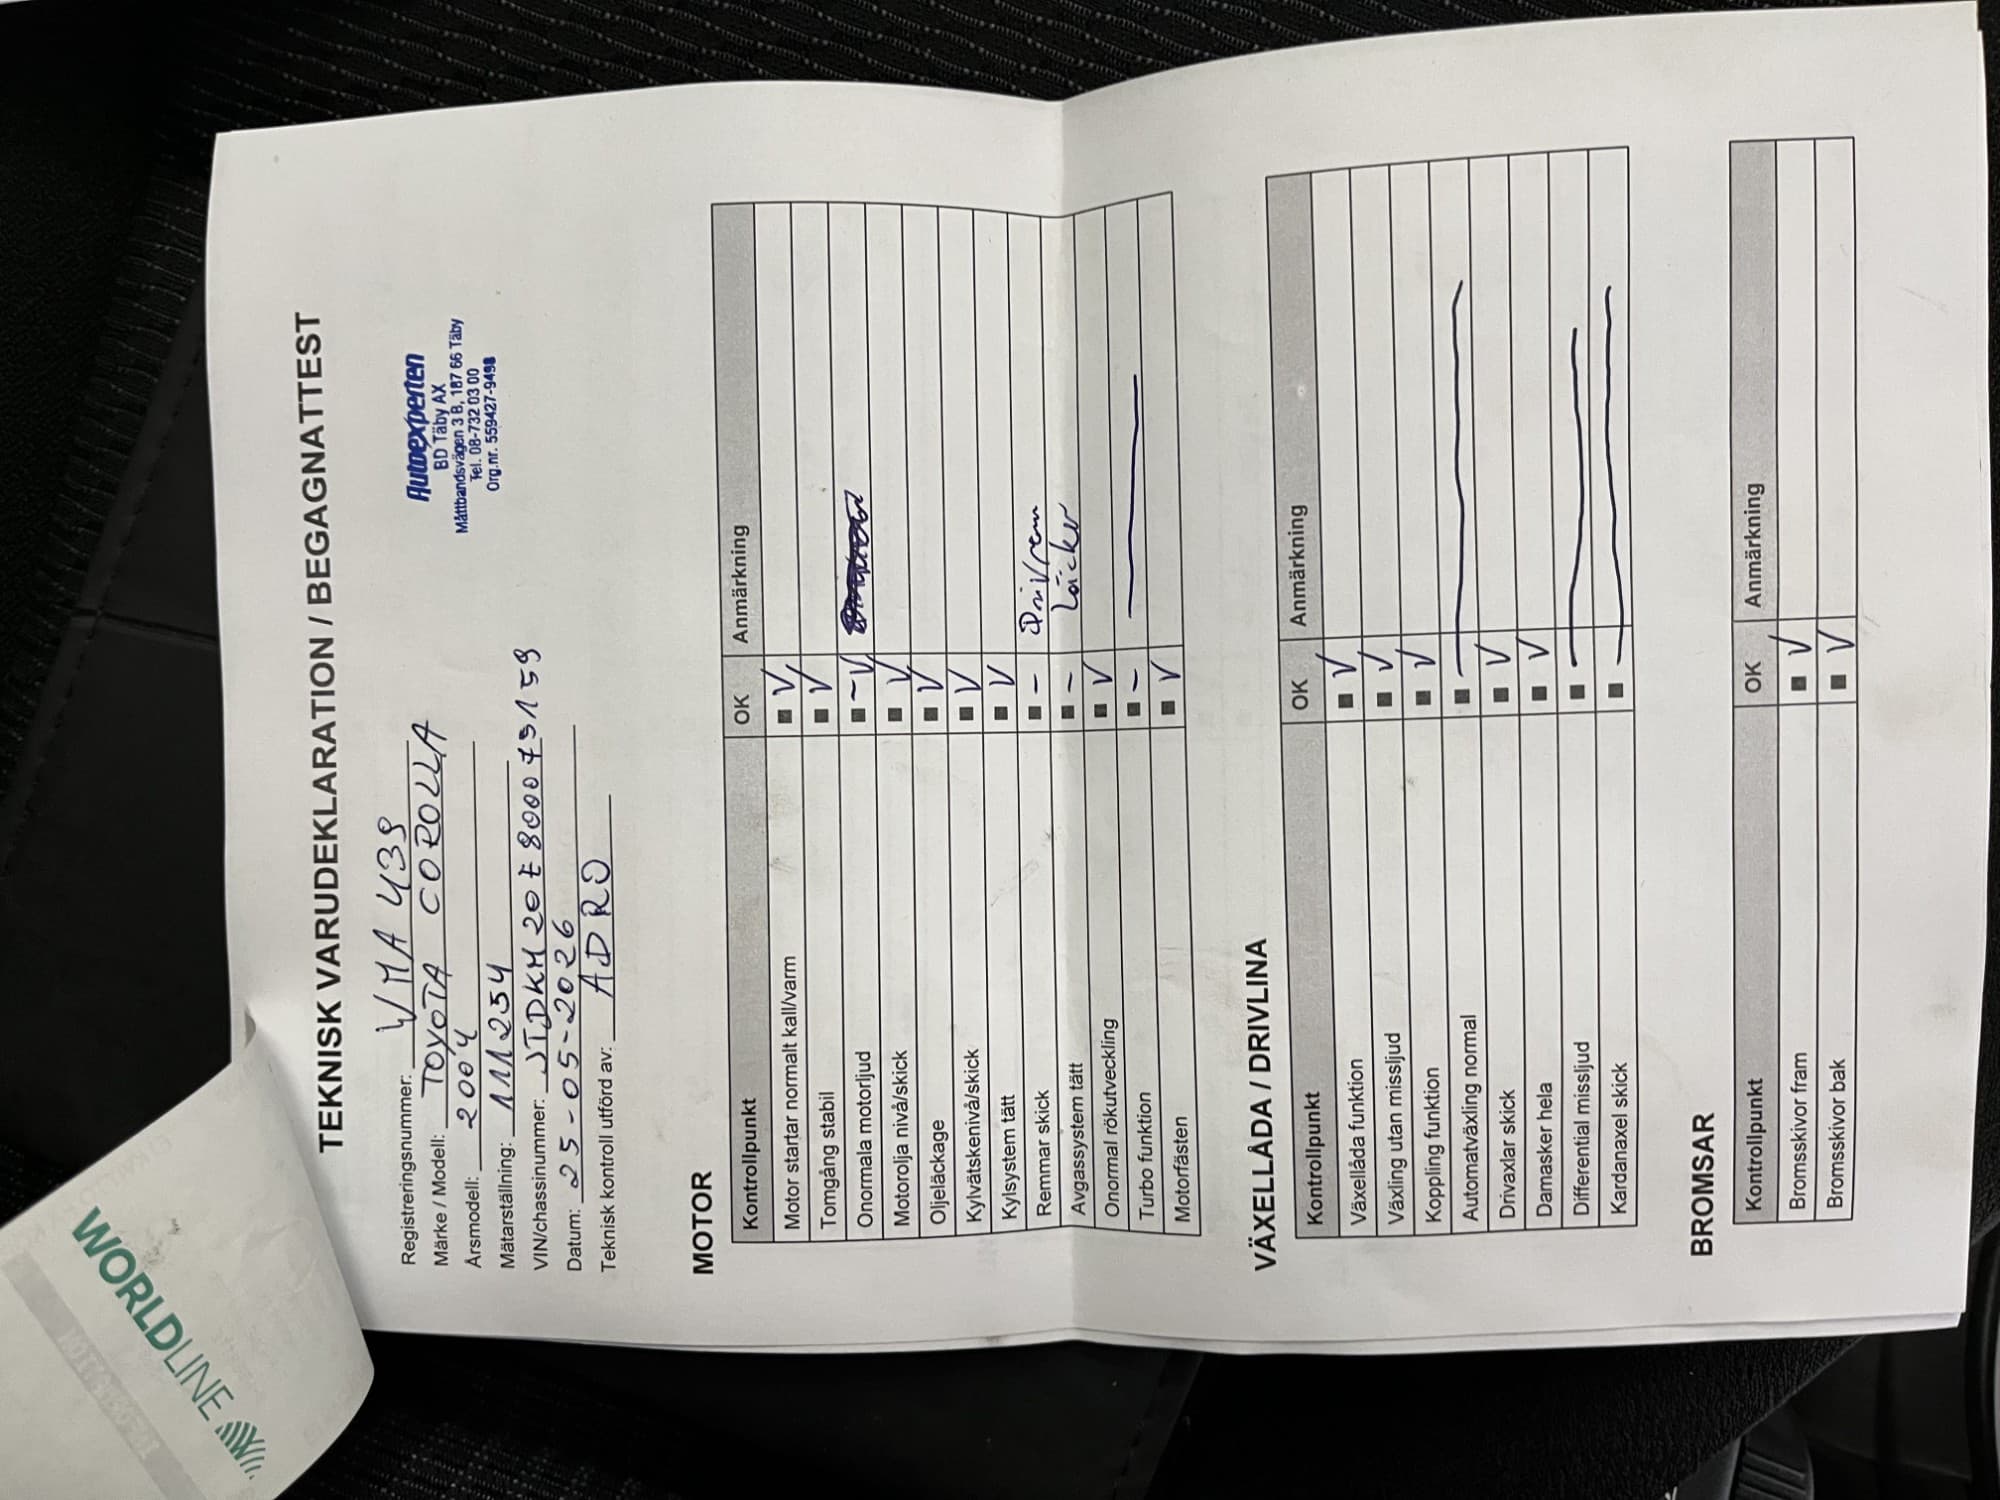 WORLDLINE
TEKNISK VARUDEKLARATION / BEGAGNATTEST
Registreringsnummer: WMA 439
Märke / Modell: TOYOTA COROLLA
Årsmodell: 2004
Mätarställning: 111254
VIN/chassinummer: JTDKM20E800073159
Datum: 25-05-2026
Teknisk kontroll utförd av: ADRO
Autoexperten
BD Täby AX
Måttbandsvägen 3 B, 187 66 Täby
Tel. 08-732 03 00
Org.nr. 559427-9498
MOTOR
Kontrollpunkt OK Anmärkning
Motor startar normalt kall/varm V
Tomgång stabil V
Onormala motorljud - V
Motorolja nivå/skick V
Oljeläckage V
Kylvätskenivå/skick V
Kylsystem tätt V
Remmar skick - Drivrem
Avgassystem tätt - Läcker
Onormal rökutveckling V
Turbo funktion -
Motorfästen V
VÄXELLÅDA / DRIVLINA
Kontrollpunkt OK Anmärkning
Växellåda funktion V
Växling utan missljud V
Koppling funktion V
Automatväxling normal
Drivaxlar skick V
Damasker hela V
Differential missljud
Kardanaxel skick
BROMSAR
Kontrollpunkt OK Anmärkning
Bromsskivor fram V
Bromsskivor bak V